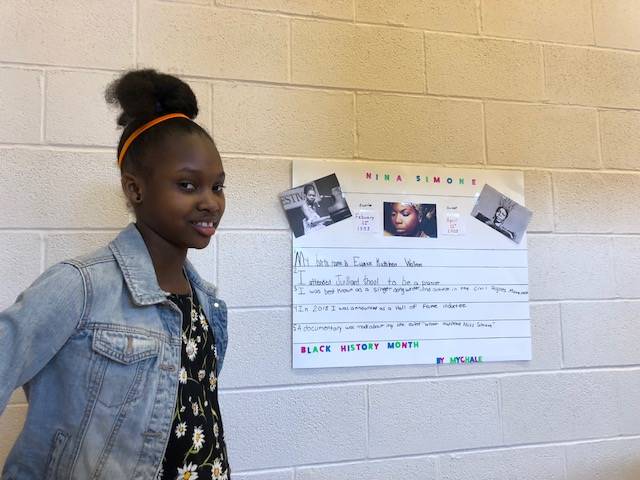 NINA SIMONE
ESTIV
February
21st
1933
April
21st
2003
My birth name is Eunice Kathleen Waymon
I attended Juilliard School to be a pianist
3 I was best known as a singer, songwriter, and activist in the Civil Rights Movement
4 In 2018 I was announced as a Hall of Fame inductee
5 A documentary was made about my life called "What Happened Miss Simone"
BLACK HISTORY MONTH
BY MYCHALE